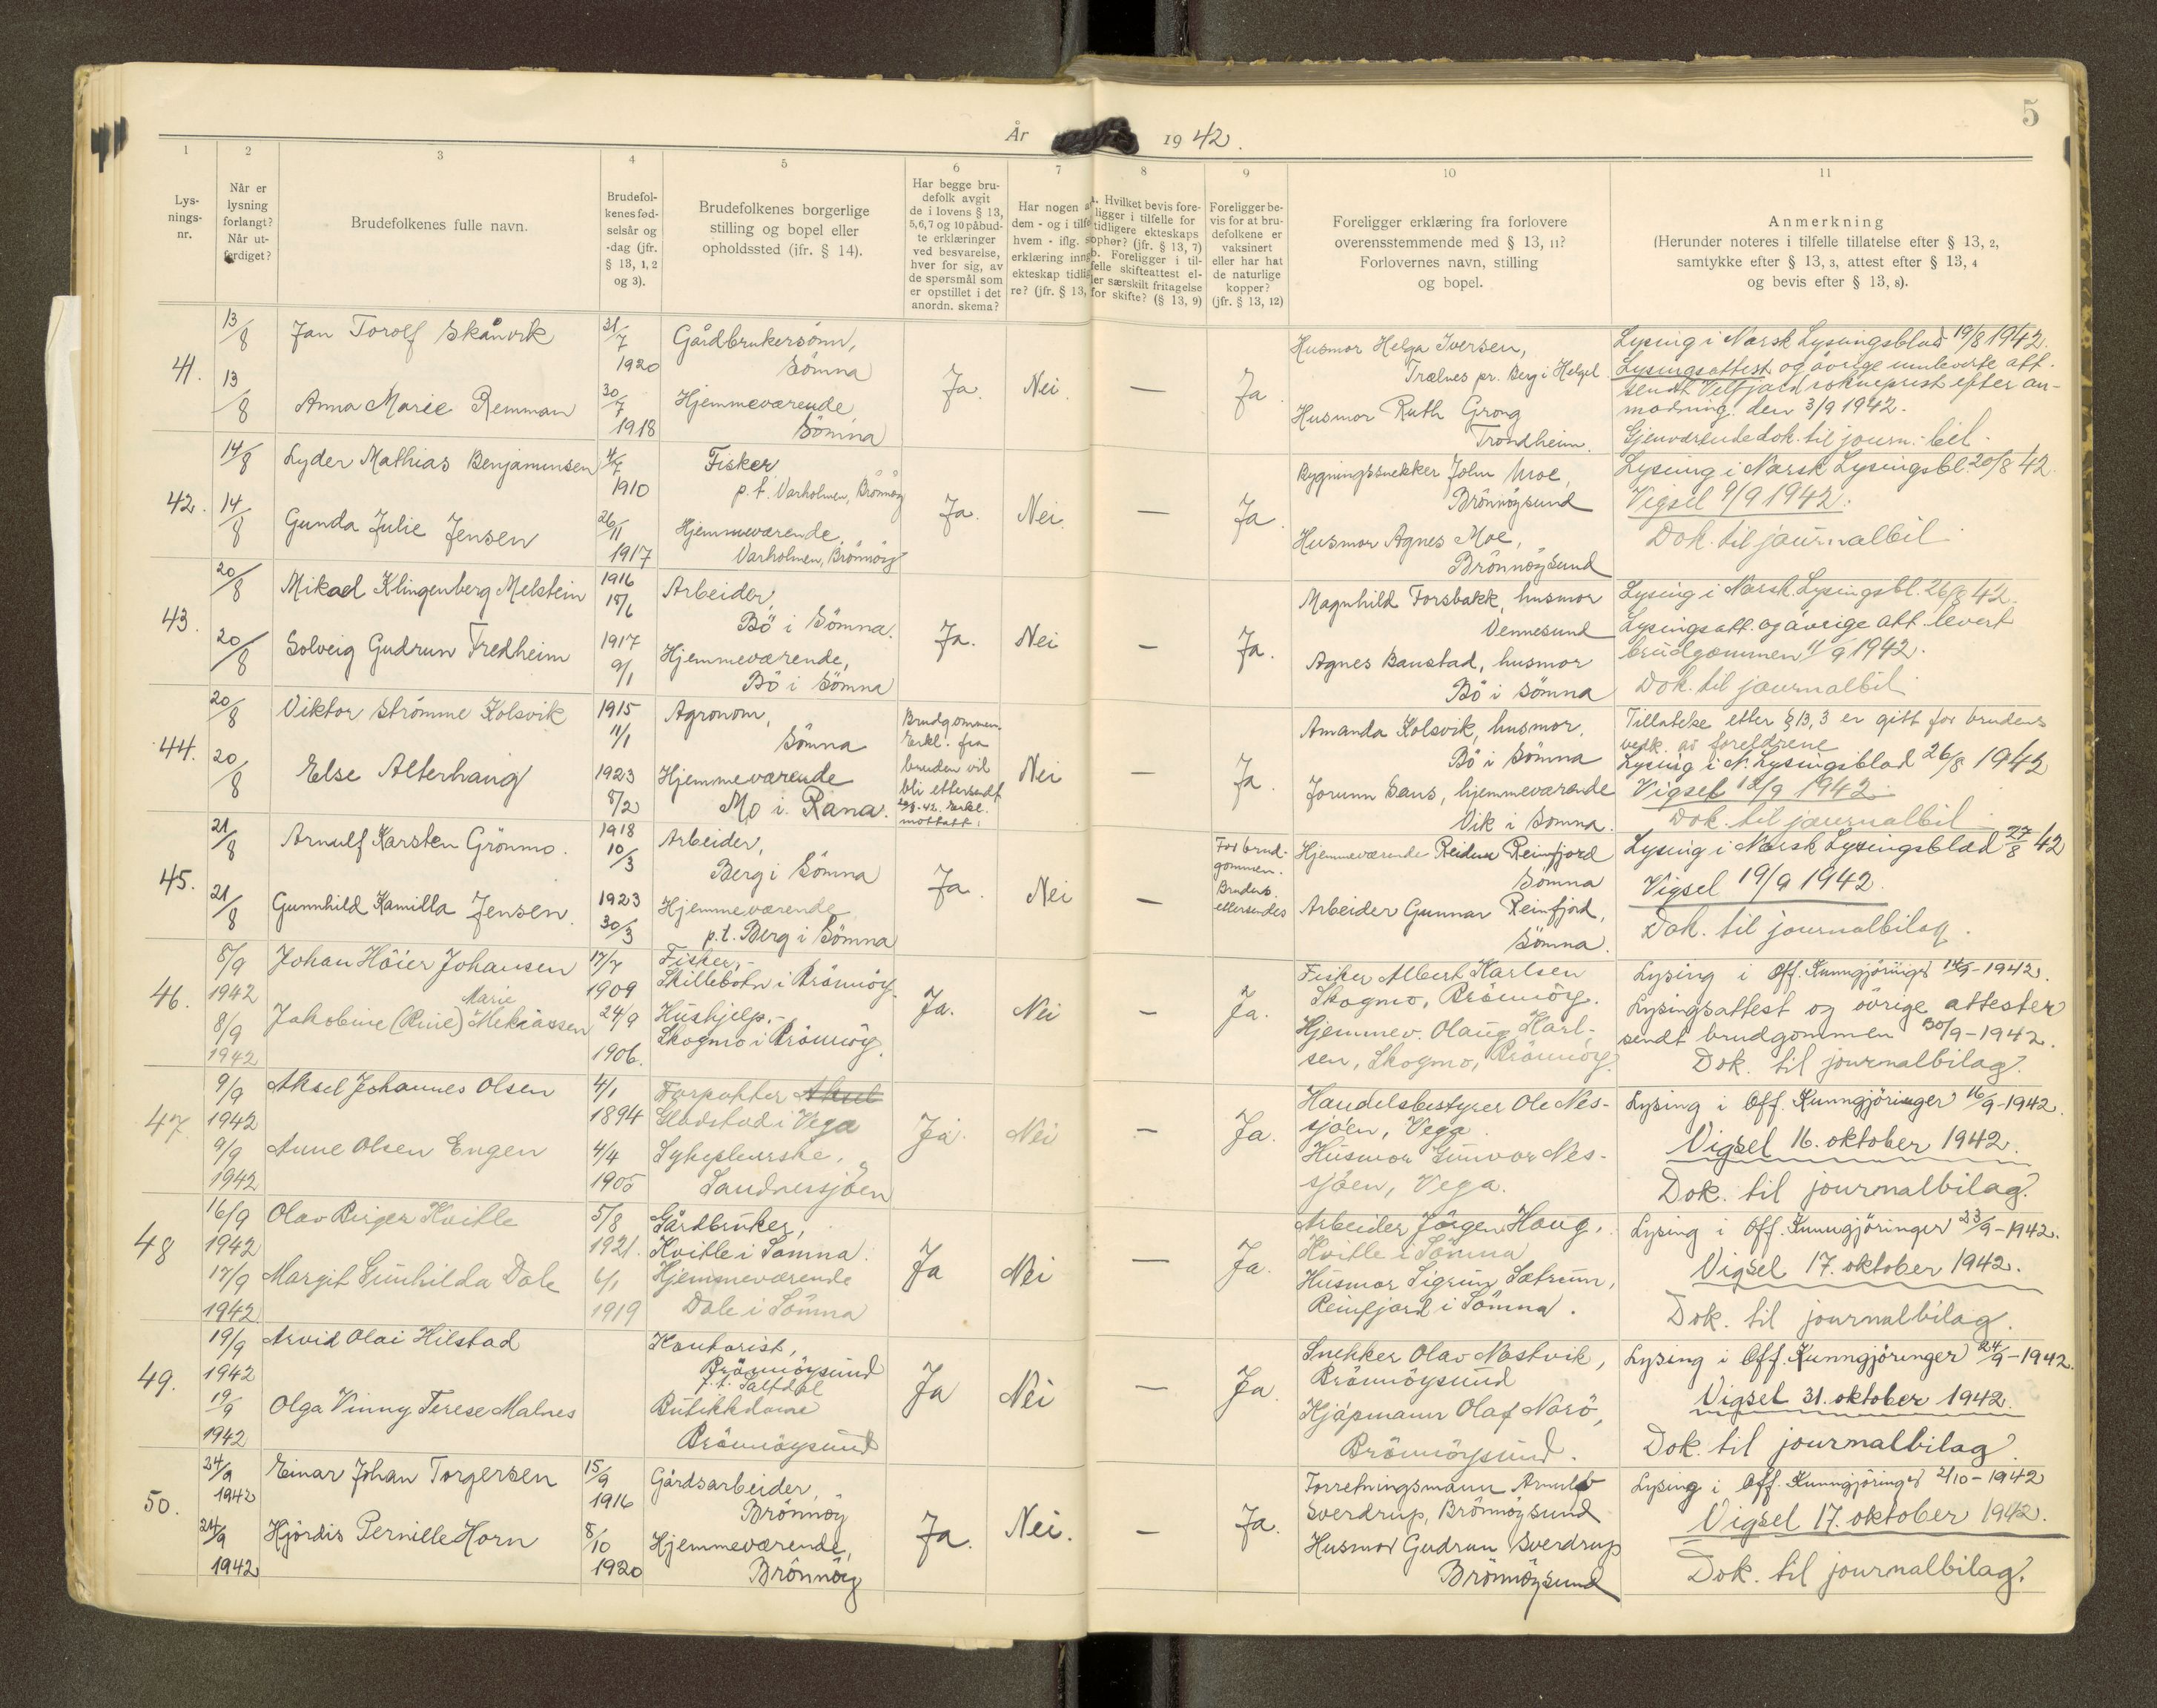 5
År 1942.
1 2 3 4 5 6 7 8 9 10 11
Lys-
nings-
nr.
Når er
lysning
forlangt?
Når ut-
ferdiget?
Brudefolkenes fulle navn.
Brudefol-
kenes fød-
selsår og
-dag (jfr.
§ 13, 1, 2
og 3).
Brudefolkenes borgerlige
stilling og bopel eller
opholdssted (jfr. § 14).
Har begge bru-
defolk avgit
de i lovens § 13,
5,6,7 og 10 påbud-
te erklæringer
ved besvarelse,
hver for sig, av
de spørsmål som
er opstillet i det
anordn. skema?
Har nogen a
dem - og i tilfe
hvem - iflg. s
erklæring inng
ekteskap tidlig
re? (jfr. § 13,
a. Hvilket bevis fore-
ligger i tilfelle for
tidligere ekteskaps
ophør? (jfr. § 13, 7)
b. Foreligger i til-
felle skifteattest el-
ler særskilt fritagelse
for skifte? (§ 13, 9)
Foreligger be-
vis for at bru-
defolkene er
vaksinert
eller har hat
de naturlige
kopper?
(jfr. § 13, 12)
Foreligger erklæring fra forlovere
overensstemmende med § 13, 11?
Forlovernes navn, stilling
og bopel.
Anmerkning
(Herunder noteres i tilfelle tillatelse efter § 13, 2,
samtykke efter § 13, 3, attest efter § 13, 4
og bevis efter § 13, 8).
41.
13/8
Jan Torolf Skånvik
31/7
1920
Gårdbrukersønn,
Sömna
13/8
Anna Marie Remman
30/7
1918
Hjemmeværende,
Sömna
Ja.
Nei.
—
Ja.
Husmor Helga Iversen,
Trælnes pr. Berg i Helgel.
Husmor Ruth Grong
Trondheim.
Lysing i Norsk Lysingsblad 19/8 1942.
Lysingsattest og övrige innleverte att.
sendt Velfjord sokneprest efter an-
modning den 3/9 1942.
Gjenværende dok. til journ. bil.
42.
14/8
Lyder Mathias Benjaminsen
4/7
1910
Fisker
p.t. Varholmen, Brönnöy
14/8
Gunda Julie Jensen
26/11
1917
Hjemmeværende,
Varholmen, Brönnöy
Ja.
Nei.
—
Ja.
Bygningssnekker John Moe,
Brönnöysund
Husmor Agnes Moe,
Brönnöysund
Lysing i Norsk Lysingsbl. 20/8 42.
Vigsel 9/9 1942.
Dok. til journalbil.
43.
20/8
Mikael Klingenberg Melstein
1916
18/6
Arbeider,
Bö i Sömna.
20/8
Solveig Gudrun Fredheim
1917
9/1
Hjemmeværende,
Bö i Sömna
Ja.
Nei
—
Ja.
Magnhild Forsbakk, husmor
Vennesund
Agnes Baustad, husmor
Bö i Sömna
Lysing i Norsk Lysingsbl. 26/8 42.
Lysingsatt. og övrige att. levert
brudgommen 11/9 1942.
Dok. til journalbil.
44.
20/8
Viktor Strömme Kolsvik
1915
11/1
Agronom,
Sömna
20/8
Else Alterhaug
1923
8/2
Hjemmeværende
Mo i Rana.
Brudgommen.
Erkl. fra
bruden vil
bli ettersendt
Erkl.
mottatt.
Nei
—
Ja.
Amanda Kolsvik, husmor,
Bö i Sömna
Jorunn Saus, hjemmeværende
Vik i Sömna.
Tillatelse etter § 13, 3 er gitt for brudens
vedk. av foreldrene
Lysing i N. Lysingsblad 26/8 1942
Vigsel 12/9 1942.
Dok. til journalbil.
45.
21/8
Arnulf Karsten Grönmo.
1918
10/3
Arbeider,
Berg i Sömna
21/8
Gunnhild Kamilla Jensen.
1923
30/3
Hjemmeværende
p.t. Berg i Sömna
Ja.
Nei
—
For brud-
gommen.
Brudens
ettersendes
Hjemmeværende Reidun Reinfjord
Sömna
Arbeider Gunnar Reinfjord,
Sömna.
Lysing i Norsk Lysingsblad 27/8 42
Vigsel 19/9 1942.
Dok. til journalbilag.
46.
8/9
1942
Johan Höier Johansen
17/7
1909
Fisker,-
Skillebotn i Brönnöy.
8/9
1942
Jakobine (Rine) Marie Mekiassen
24/9
1906.
Hushjelp,-
Skogmo i Brönnöy.
Ja.
Nei
—
Ja.
Fisker Albert Karlsen
Skogmo, Brönnöy.
Hjemmev. Olaug Karl-
sen, Skogmo, Brönnöy.
Lysing i Off. Kunngjöringer 14/9-1942.
Lysingsattest og övrige attester
sendt brudgommen 30/9-1942.
Dok. til journalbilag.
47.
9/9
1942
Aksel Johannes Olsen
4/1
1894
Forpakter
Gladstad i Vega
9/9
1942
Anne Olsen Engen
4/4
1905
Sykepleierske,
Sandnessjöen
Ja.
Nei
—
Ja.
Handelsbestyrer Ole Nes-
sjöen, Vega.
Husmor Gunvor Nes-
sjöen, Vega.
Lysing i Off. Kunngjöringer 16/9-1942.
Vigsel 16. oktober 1942.
Dok. til journalbilag.
48
16/9
1942
Olav Birger Kvitle
5/8
1921.
Gårdbruker,
Kvitle i Sömna.
17/9
1942
Margit Gunhilda Dale
6/1
1919
Hjemmeværende
Dale i Sömna
Ja
Nei
—
Ja.
Arbeider Jörgen Haug,
Kvitle i Sömna
Husmor Sigrun Sætrum,
Reinfjord i Sömna.
Lysing i Off. Kunngjöringer 23/9-1942.
Vigsel 17. oktober 1942.
Dok. til journalbilag.
49.
19/9
1942
Arvid Olai Hilstad
Kontorist,
Brönnöysund
p.t. Saltdal
19/9
1942
Olga Vinny Terese Malnes
Butikkdame
Brönnöysund
Ja
Nei
—
Ja.
Snekker Olav Nostvik,
Brönnöysund
Kjöpmann Olaf Norö,
Brönnöysund.
Lysing i Off. Kunngjöringer 24/9-1942.
Vigsel 31. oktober 1942.
Dok. til journalbilag.
50.
24/9
1942
Einar Johan Torgersen
15/9
1916
Gårdsarbeider,
Brönnöy
24/9
1942
Hjördis Pernille Horn
8/10
1920
Hjemmeværende,
Brönnöy
Ja.
Nei.
—
Ja.
Forretningsmann Arnulf
Sverdrup, Brönnöysund
Husmor Gudrun Sverdrup
Brönnöysund
Lysing i Off. Kunngjöringer 2/10-1942
Vigsel 17. oktober 1942.
Dok. til journalbilag.